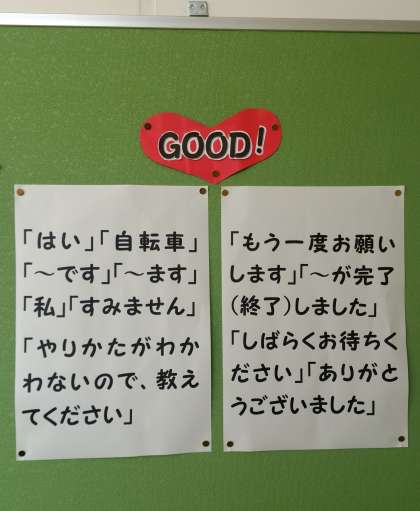 GOOD!
「はい」「自転車」
「～です」「～ます」
「私」「すみません」
「やりかたがわか
わないので、教え
てください」
「もう一度お願い
します」「～が完了
（終了）しました」
「しばらくお待ちく
ださい」「ありがと
うございました」